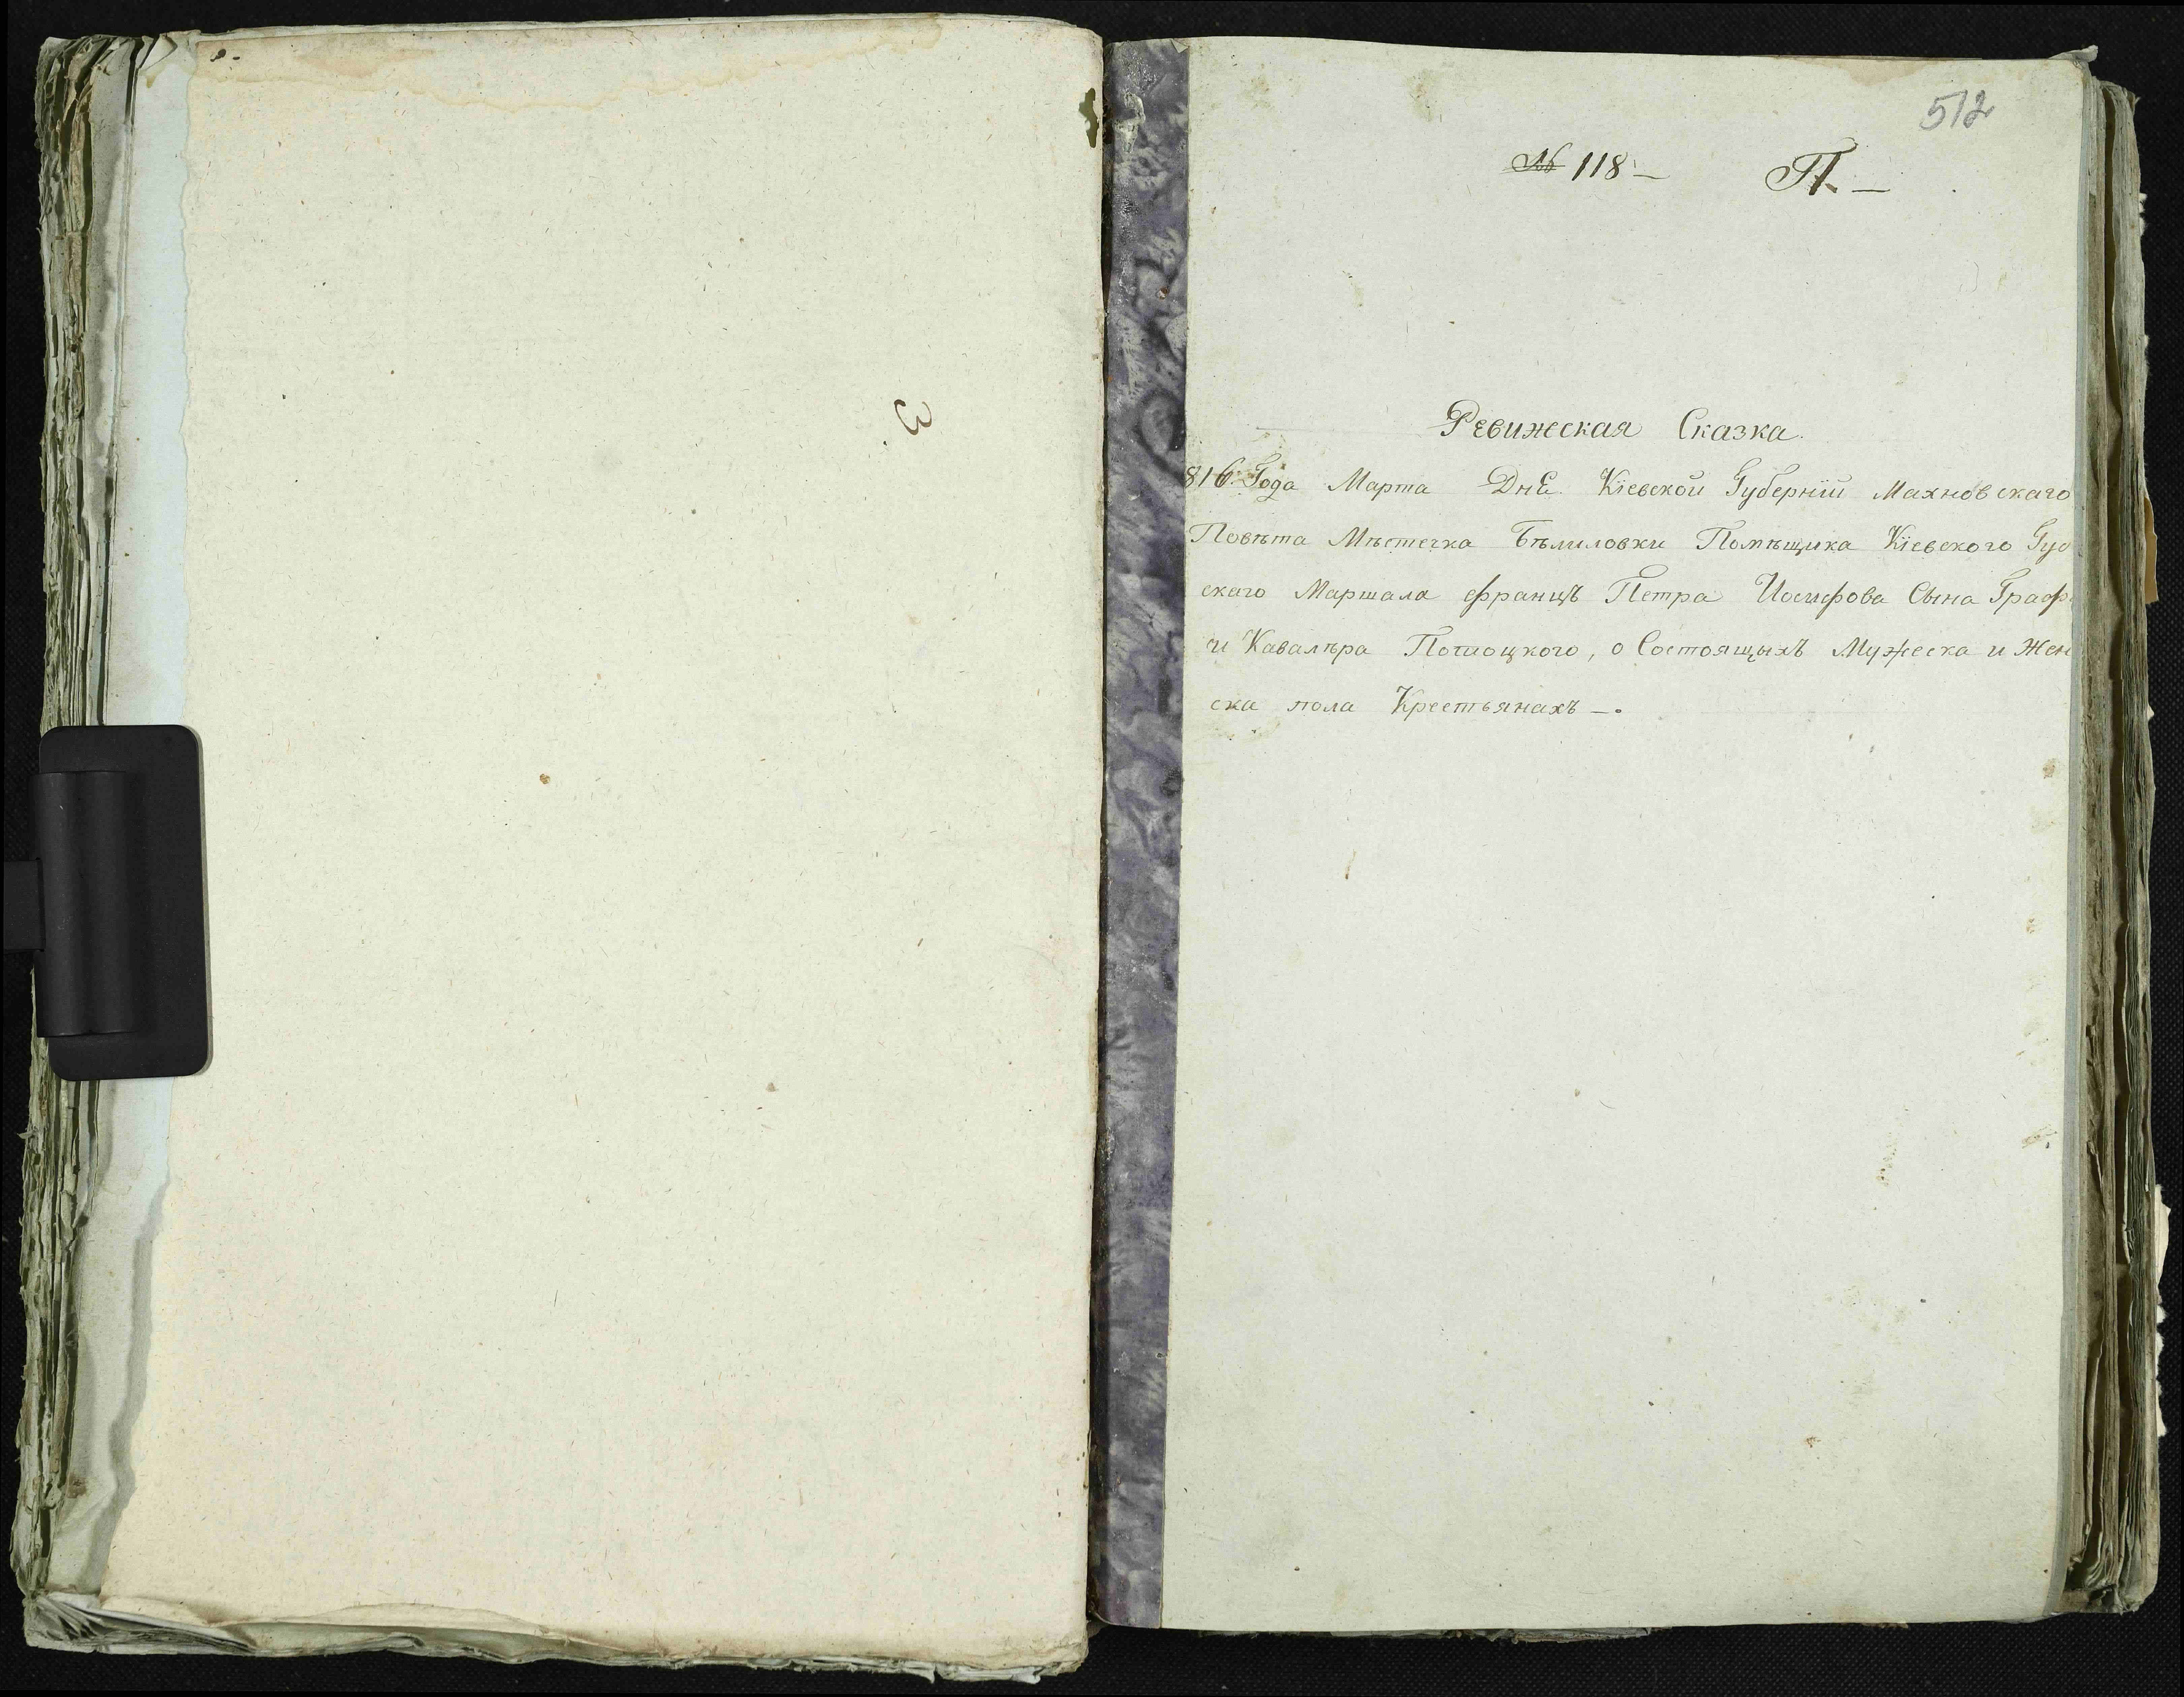 З
512
№ 118 — П. —
Ревижская Сказка.
816 Года Марта Дня Кіевской Губерніи Махновскаго
Повѣта Мѣстечка Бѣлиловки Помѣщика Кіевского Губ
скаго Маршала Францъ Петра Иосифова Сына Граф
и Кавалѣра Потоцкого, о Состоящыхъ Мужеска и Жен
ска пола Крестьянахъ —.